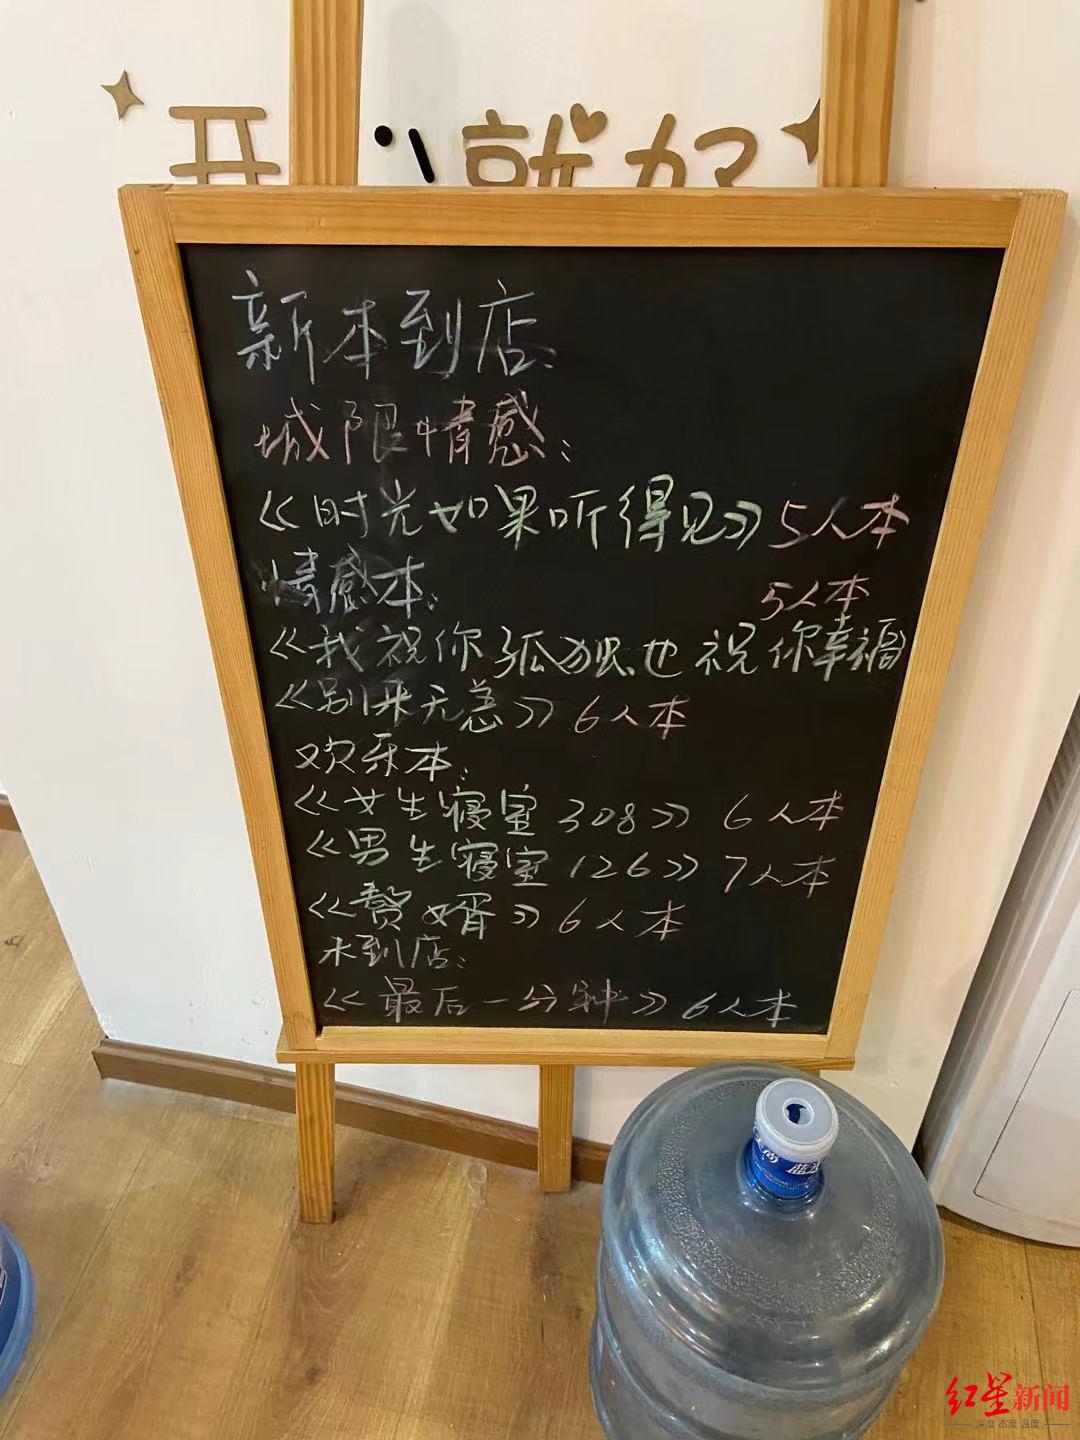 新本到店:
城限情感:
《时光如果听得见》5人本
情感本:
5人本
《我祝你孤独也祝你幸福》
《别来无恙》6人本
欢乐本:
《女生寝室308》6人本
《男生寝室126》7人本
《赘婿》6人本
未到店:
《最后一分钟》6人本
红星新闻
深度 态度 温度